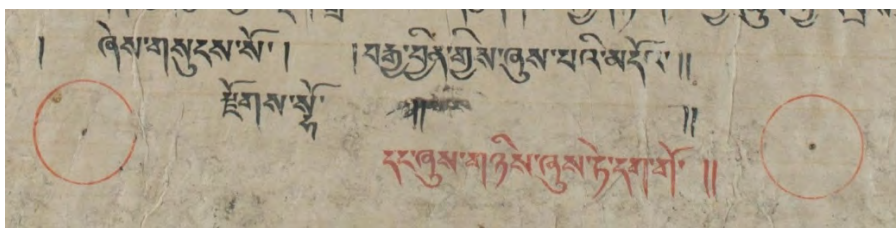 ། ཞེས་གསུངས་སོ་ །  །བརྒྱ་བྱིན་གྱིས་ཞུས་པའི་མདོ་་ །།
རྫོགས་སྷོ་ །། །།
དང་ཞུས་གཉིས་ཞུས་ཏེ་དག་གོ་ །།